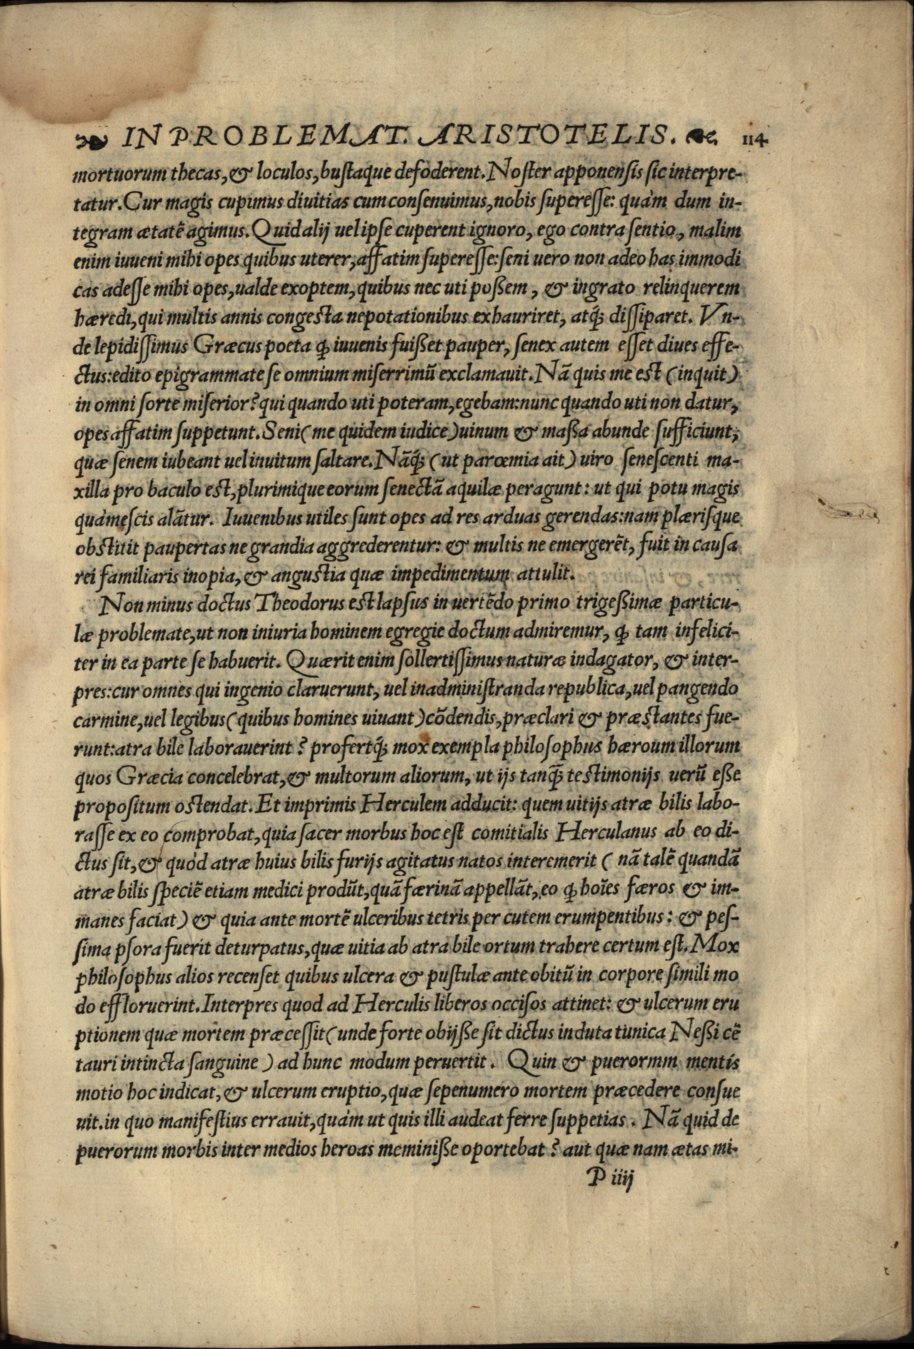 IN PROBLEMAT. ARISTOTELIS. 114
mortuorum thecas, & loculos, bustaque defoderent. Noster apponensis sic interpre-
tatur. Cur magis cupimus diuitias cum consenuimus, nobis superesse: quàm dum in-
tegram ætatē agimus. Quid alij uel ipse cuperent ignoro, ego contra sentio, malim
enim iuueni mihi opes quibus uterer, affatim superesse: seni uero non adeo has immodi
cas adesse mihi opes, ualde exoptem, quibus nec uti possem, & ingrato relinquerem
hæredi, qui multis annis congesta nepotationibus exhauriret, atq́; dissiparet. Vn-
de lepidissimus Græcus poeta q̓ iuuenis fuisset pauper, senex autem esset diues effe-
ctus: edito epigrammate se omnium miserrimū exclamauit. Nā quis me est (inquit)
in omni sorte miserior? qui quando uti poteram, egebam: nunc quando uti non datur,
opes affatim suppetunt. Seni (me quidem iudice) uinum & massa abunde sufficiunt,
quæ senem iubeant uel inuitum saltare. Nāq́; (ut parœmia ait) uiro senescenti ma-
xilla pro baculo est, plurimique eorum senectā aquilæ peragunt: ut qui potu magis
quàm escis alātur. Iuuenibus utiles sunt opes ad res arduas gerendas: nam plærisque
obstitit paupertas ne grandia aggrederentur: & multis ne emergerēt, fuit in causa
rei familiaris inopia, & angustia quæ impedimentum attulit.
Non minus doctus Theodorus est lapsus in uertēdo primo trigessimæ particu-
læ problemate, ut non iniuria hominem egregie doctum admiremur, q̓ tam infelici-
ter in ea parte se habuerit. Quærit enim sollertissimus naturæ indagator, & inter-
pres: cur omnes qui ingenio claruerunt, uel in administranda republica, uel pangendo
carmine, uel legibus (quibus homines uiuant) cōdendis, præclari & præstantes fue-
runt: atra bile laborauerint? profertq́; mox exempla philosophus hæroum illorum
quos Græcia concelebrat, & multorum aliorum, ut ijs tanq̄ testimonijs uerū esse
propositum ostendat. Et imprimis Herculem adducit: quem uitijs atræ bilis labo-
rasse ex eo comprobat, quia sacer morbus hoc est comitialis Herculanus ab eo di-
ctus sit, & quòd atræ huius bilis furijs agitatus natos interemerit (nā talē quandā
atræ bilis speciē etiam medici produ̅t, quā færinā appellāt, eo q̓ hoi̅es færos & im-
manes faciat) & quia ante mortē ulceribus tetris per cutem erumpentibus: & pes-
sima psora fuerit deturpatus, quæ uitia ab atra bile ortum trahere certum est. Mox
philosophus alios recenset quibus ulcera & pustulæ ante obitū in corpore simili mo
do effloruerint. Interpres quod ad Herculis liberos occisos attinet: & ulcerum eru
ptionem quæ mortem præcessit (unde forte obijsse sit dictus induta tunica Nessi cē
tauri intincta sanguine) ad hunc modum peruertit. Quin & puerormm mentis
motio hoc indicat, & ulcerum eruptio, quæ sepenumero mortem præcedere consue
uit. in quo manifestius errauit, quàm ut quis illi audeat ferre suppetias. Nā quid de
puerorum morbis inter medios heroas meminisse oportebat? aut quæ nam ætas mi-
P iiij